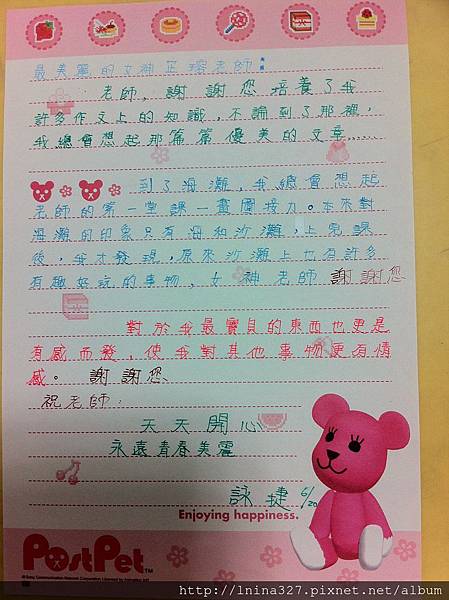 最美麗的女神芷瑢老師:
老師，謝謝您培養了我
許多作文上的知識，不論到了那裡，
我總會想起那篇篇優美的文章……
到了海灘，我總會想起
老師的第一堂課－畫圖接力。本來對
海灘的印象只有海和沙灘，上完課
後，我才發現，原來沙灘上也有許多
有趣好玩的事物，女神老師謝謝您
對於我最寶貝的東西也更是
有感而發，使我對其他事物更有情
感。謝謝您、
祝老師：
天天開心
永遠青春美麗
詠捷 6/20
Enjoying happiness.
PostPet™
http://lnina327.pixnet.net/album